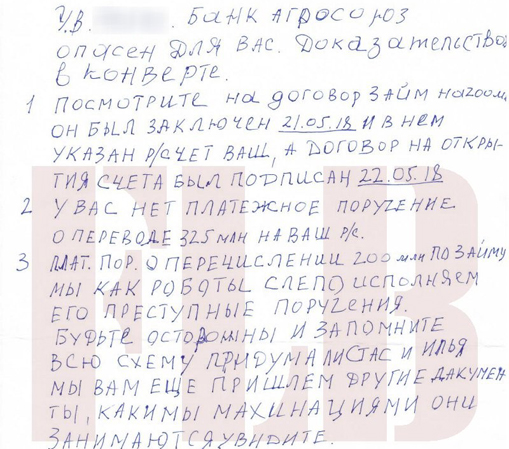 У.В. . БАНК АГРОСОЮЗ
ОПАСЕН ДЛЯ ВАС. ДОКАЗАТЕЛЬСТВО
В КОНВЕРТЕ.
1 ПОСМОТРИТЕ НА ДОГОВОР ЗАЙМ НА 200 м.
ОН БЫЛ ЗАКЛЮЧЕН 21.05.18 И В НЕМ
УКАЗАН Р/СЧЕТ ВАШ, А ДОГОВОР НА ОТКРЫ-
ТИЯ СЧЕТА БЫЛ ПОДПИСАН 22.05.18
2 У ВАС НЕТ ПЛАТЕЖНОЕ ПОРУЧЕНИЕ
О ПЕРЕВОДЕ 325 млн НА ВАШ Р/С.
3 ПЛАТ. ПОР. О ПЕРЕЧИСЛЕНИИ 200 млн ПО ЗАЙМУ
МЫ КАК РОБОТЫ СЛЕПО ИСПОЛНЯЕМ
ЕГО ПРЕСТУПНЫЕ ПОРУЧЕНИЯ
БУДЬТЕ ОСТОРОЖНЫ И ЗАПОМНИТЕ
ВСЮ СХЕМУ ПРИДУМАЛИ СТАС И ИЛЬЯ
МЫ ВАМ ЕЩЕ ПРИШЛЕМ ДРУГИЕ ДАКУМЕН
ТЫ, КАКИМЫ МАХИНАЦИЯМИ ОНИ
ЗАНИМАЮТСЯ УВИДИТЕ.
FLB